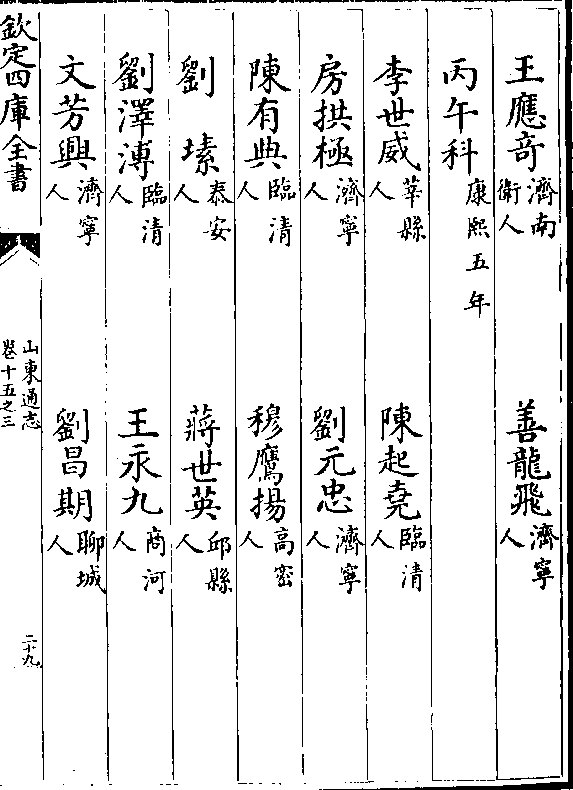 王應竒濟南衛人 善龍飛濟寧人
丙午科康熙五年
李世威莘縣人 陳起堯臨清人
房拱極濟寧人 劉元忠濟寧人
陳有典臨清人 穆鷹揚高密人
劉 塐泰安人 蔣世英邱縣人
劉澤溥臨清人 王永九商河人
文芳興濟寧人 劉昌期聊城人
欽定四庫全書
山東通志
卷十五之三
二十九